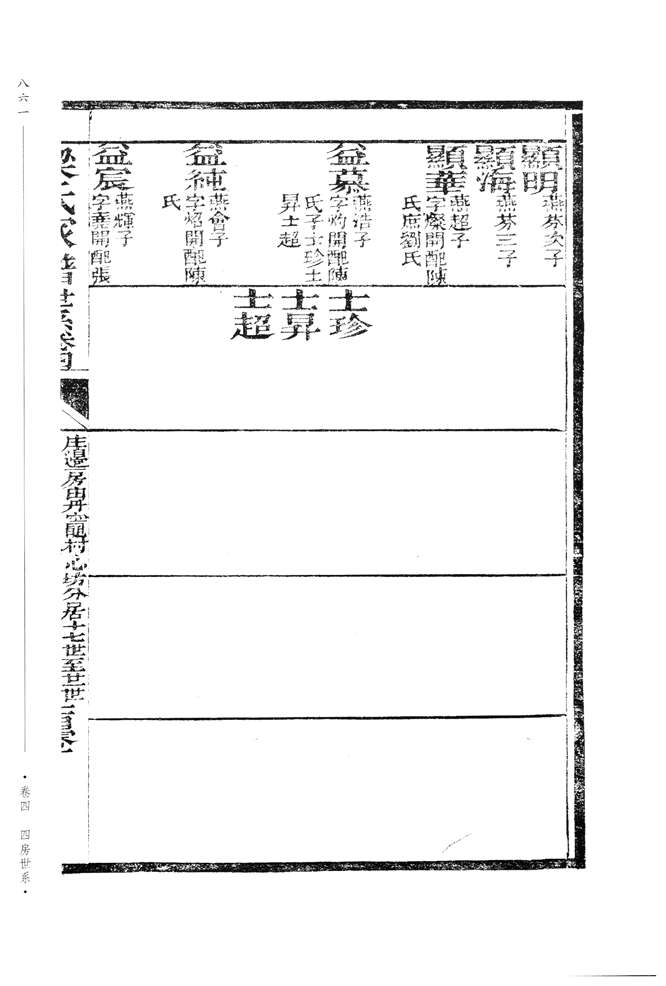 顯明
燕芬次子
顯海
燕芬三子
顯華
燕超子
字燦開配陳
氏庶劉氏
益慕
燕浩子
字灼開配陳
氏子士珍士
昇士超
益純
燕會子
字焰開配陳
氏
益宸
燕輝子
字堯開配張
士珍
士昇
士超
氏家譜世系卷四
庄邊房由丹灶村心坊分居十七世至廿世
八六一
卷四 四房世系